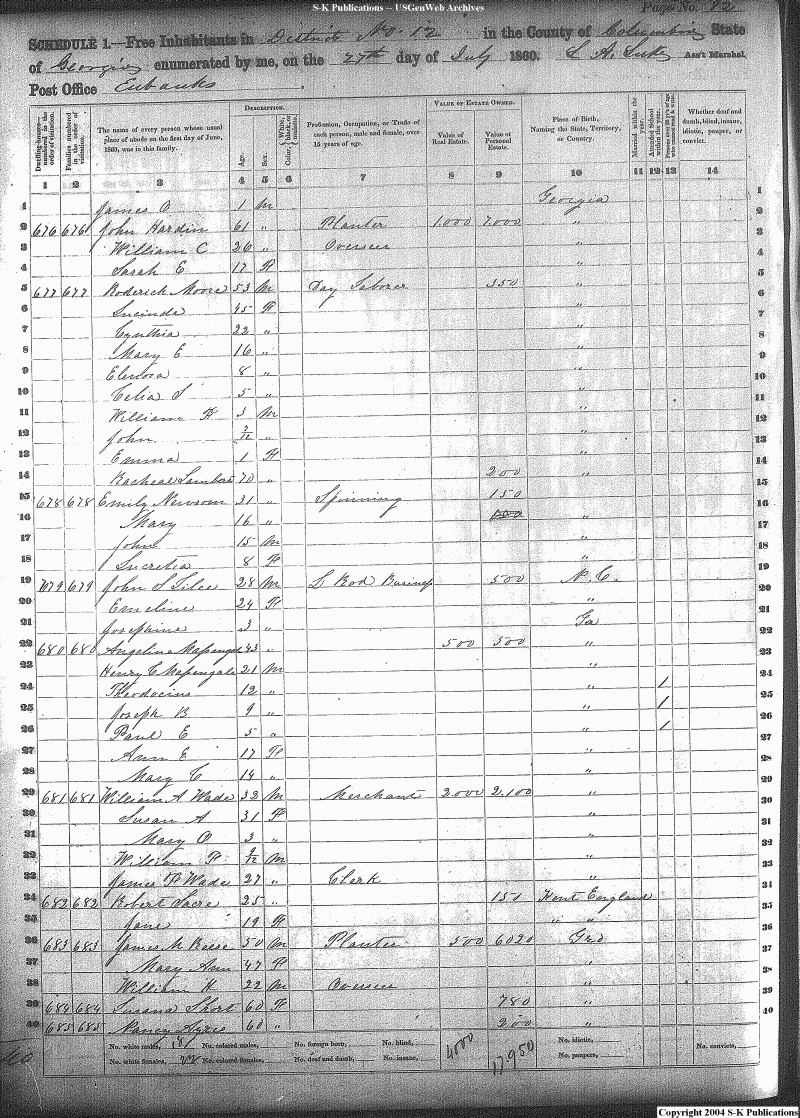 S-K Publications -- USGenWeb Archives
Page No. 82
SCHEDULE 1.—Free Inhabitants in District No. 12 in the County of Columbia State
of Georgia enumerated by me, on the 27th day of July 1860. Ass't Marshal.
Post Office Eubanks
DESCRIPTION. VALUE OF ESTATE OWNED.
Dwelling-houses—numbered in the order of visitation. Families numbered in the order of visitation. The name of every person whose usual place of abode on the first day of June, 1860, was in this family. Age. Sex. Color, White, black, or mulatto. Profession, Occupation, or Trade of each person, male and female, over 15 years of age. Value of Real Estate. Value of Personal Estate. Place of Birth, Naming the State, Territory, or Country. Married within the year. Attended School within the year. Whether deaf and dumb, blind, insane, idiotic, pauper, or convict.
1 2 3 4 5 6 7 8 9 10 11 12 13 14
1 James O 1 M Georgia 1
2 676 676 John Hardin 61 " Planter 1.000 7.000 " 2
3 William C 26 " Overseer " 3
4 Sarah E 17 F " 4
5 677 677 Roderick Moore 53 M Day Laborer 350 " 5
6 Lucinda 45 F " 6
7 Cynthia 22 " " 7
8 Mary E 16 " " 8
9 8 " " 9
10 Celia S 5 " " 10
11 William F 3 M " 11
12 John " " 12
13 Emma 1 F " 13
14 70 " 200 " 14
15 678 678 Emily Newsom 31 " Spinning 150 15
16 Mary 16 " 150 " 16
17 John 15 M " 17
18 Lucretia 8 F " 18
19 679 679 John S 28 M 500 N. C. 19
20 Emeline 24 F " 20
21 Josephine 3 " Ga 21
22 680 680 Angelina 43 " 500 500 " 22
23 Henry C 21 M " 23
24 Theodocius 12 " " 1 24
25 Joseph B 9 " " 1 25
26 Paul E 5 " " 1 26
27 Ann E 17 F " 27
28 Mary C 14 " " 28
29 681 681 William A Wade 32 M Merchant 2.000 2.100 " 29
30 Susan A 31 F " 30
31 Mary O 3 " " 31
32 William M " 32
33 James F Wade 27 " Clerk " 33
34 682 682 Robert Sacre 25 " 150 Kent England 34
35 Jane 19 F " " 35
36 683 683 James M Reese 50 M Planter 500 6020 36
37 Mary Ann 47 F " 37
38 William H 22 M Overseer " 38
39 684 684 Susana Short 60 F 780 " 39
40 685 685 Nancy 60 " 200 " 40
No. white males, No. colored males, No. foreign born, No. blind, 4000 17.950 No. idiotic, No. convicts,
No. white females, No. colored females, No. deaf and dumb, No. insane, No. paupers,
Copyright 2004 S-K Publications